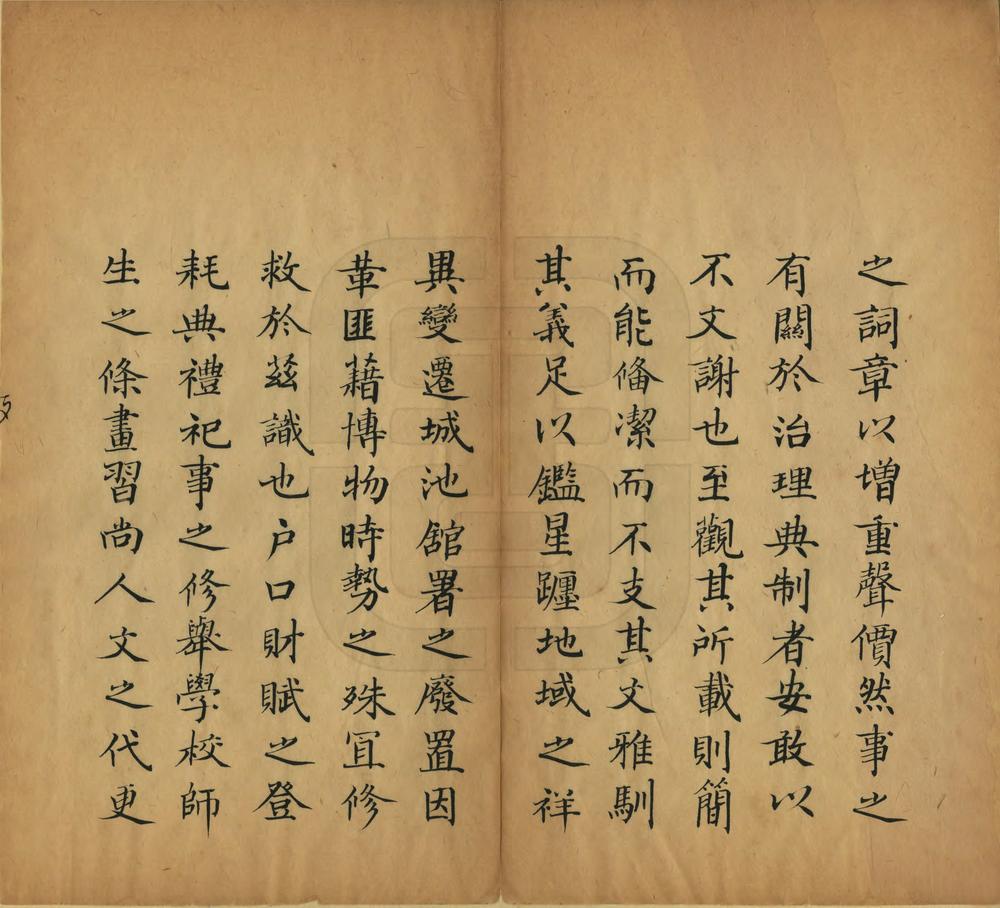 之詞章以增重聲價然事之
有關於治理典制者安敢以
不文謝也至觀其所載則簡
而能俻潔而不支其文雅馴
其義足以鑑星躔地域之祥
異變遷城池舘署之廢置因
革匪藉博物時勢之殊冝修
救於兹識也户口財賦之登
耗典禮祀事之修舉學校師
生之條畫習尚人文之代更